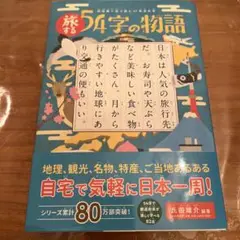 旅する
54字の物語
日本は人気の旅行先
だ。お寿司や天ぷら
など美味しい食べ物
がたくさん。月から
行きやすい地球にあ
り、通の便もいい。
地理、観光、名物、特産、ご当地あるある
自宅で気軽に日本一周!
シリーズ累計80万部突破!
氏田雄介